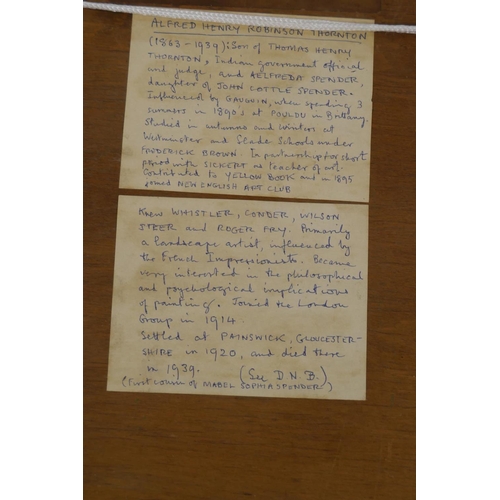 ALFRED HENRY ROBINSON THORNTON
(1863 - 1939); Son of THOMAS HENRY
THORNTON, Indian government official
and judge, and AELFREDA SPENDER
daughter of JOHN COTTLE SPENDER.
Influenced by GAUGUIN, when spending 3
summers in 1890s at POULDU in Brittany.
Studied in autumns and winters at
Westminster and Slade Schools under
FREDERICK BROWN. In partnership for short
period with SICKERT as teacher of art.
Contributed to YELLOW BOOK and in 1895
joined NEW ENGLISH ART CLUB
Knew WHISTLER, CONDER, WILSON
STEER and ROGER FRY. Primarily
a landscape artist, influenced by
the French Impressionists. Became
very interested in the philosophical
and psychological implications
of painting. Joined the London
Group in 1914.
Settled at PAINSWICK, GLOUCESTER-
SHIRE in 1920, and died there
in 1939. (See D.N.B.)
(First cousin of MABEL SOPHIA SPENDER)